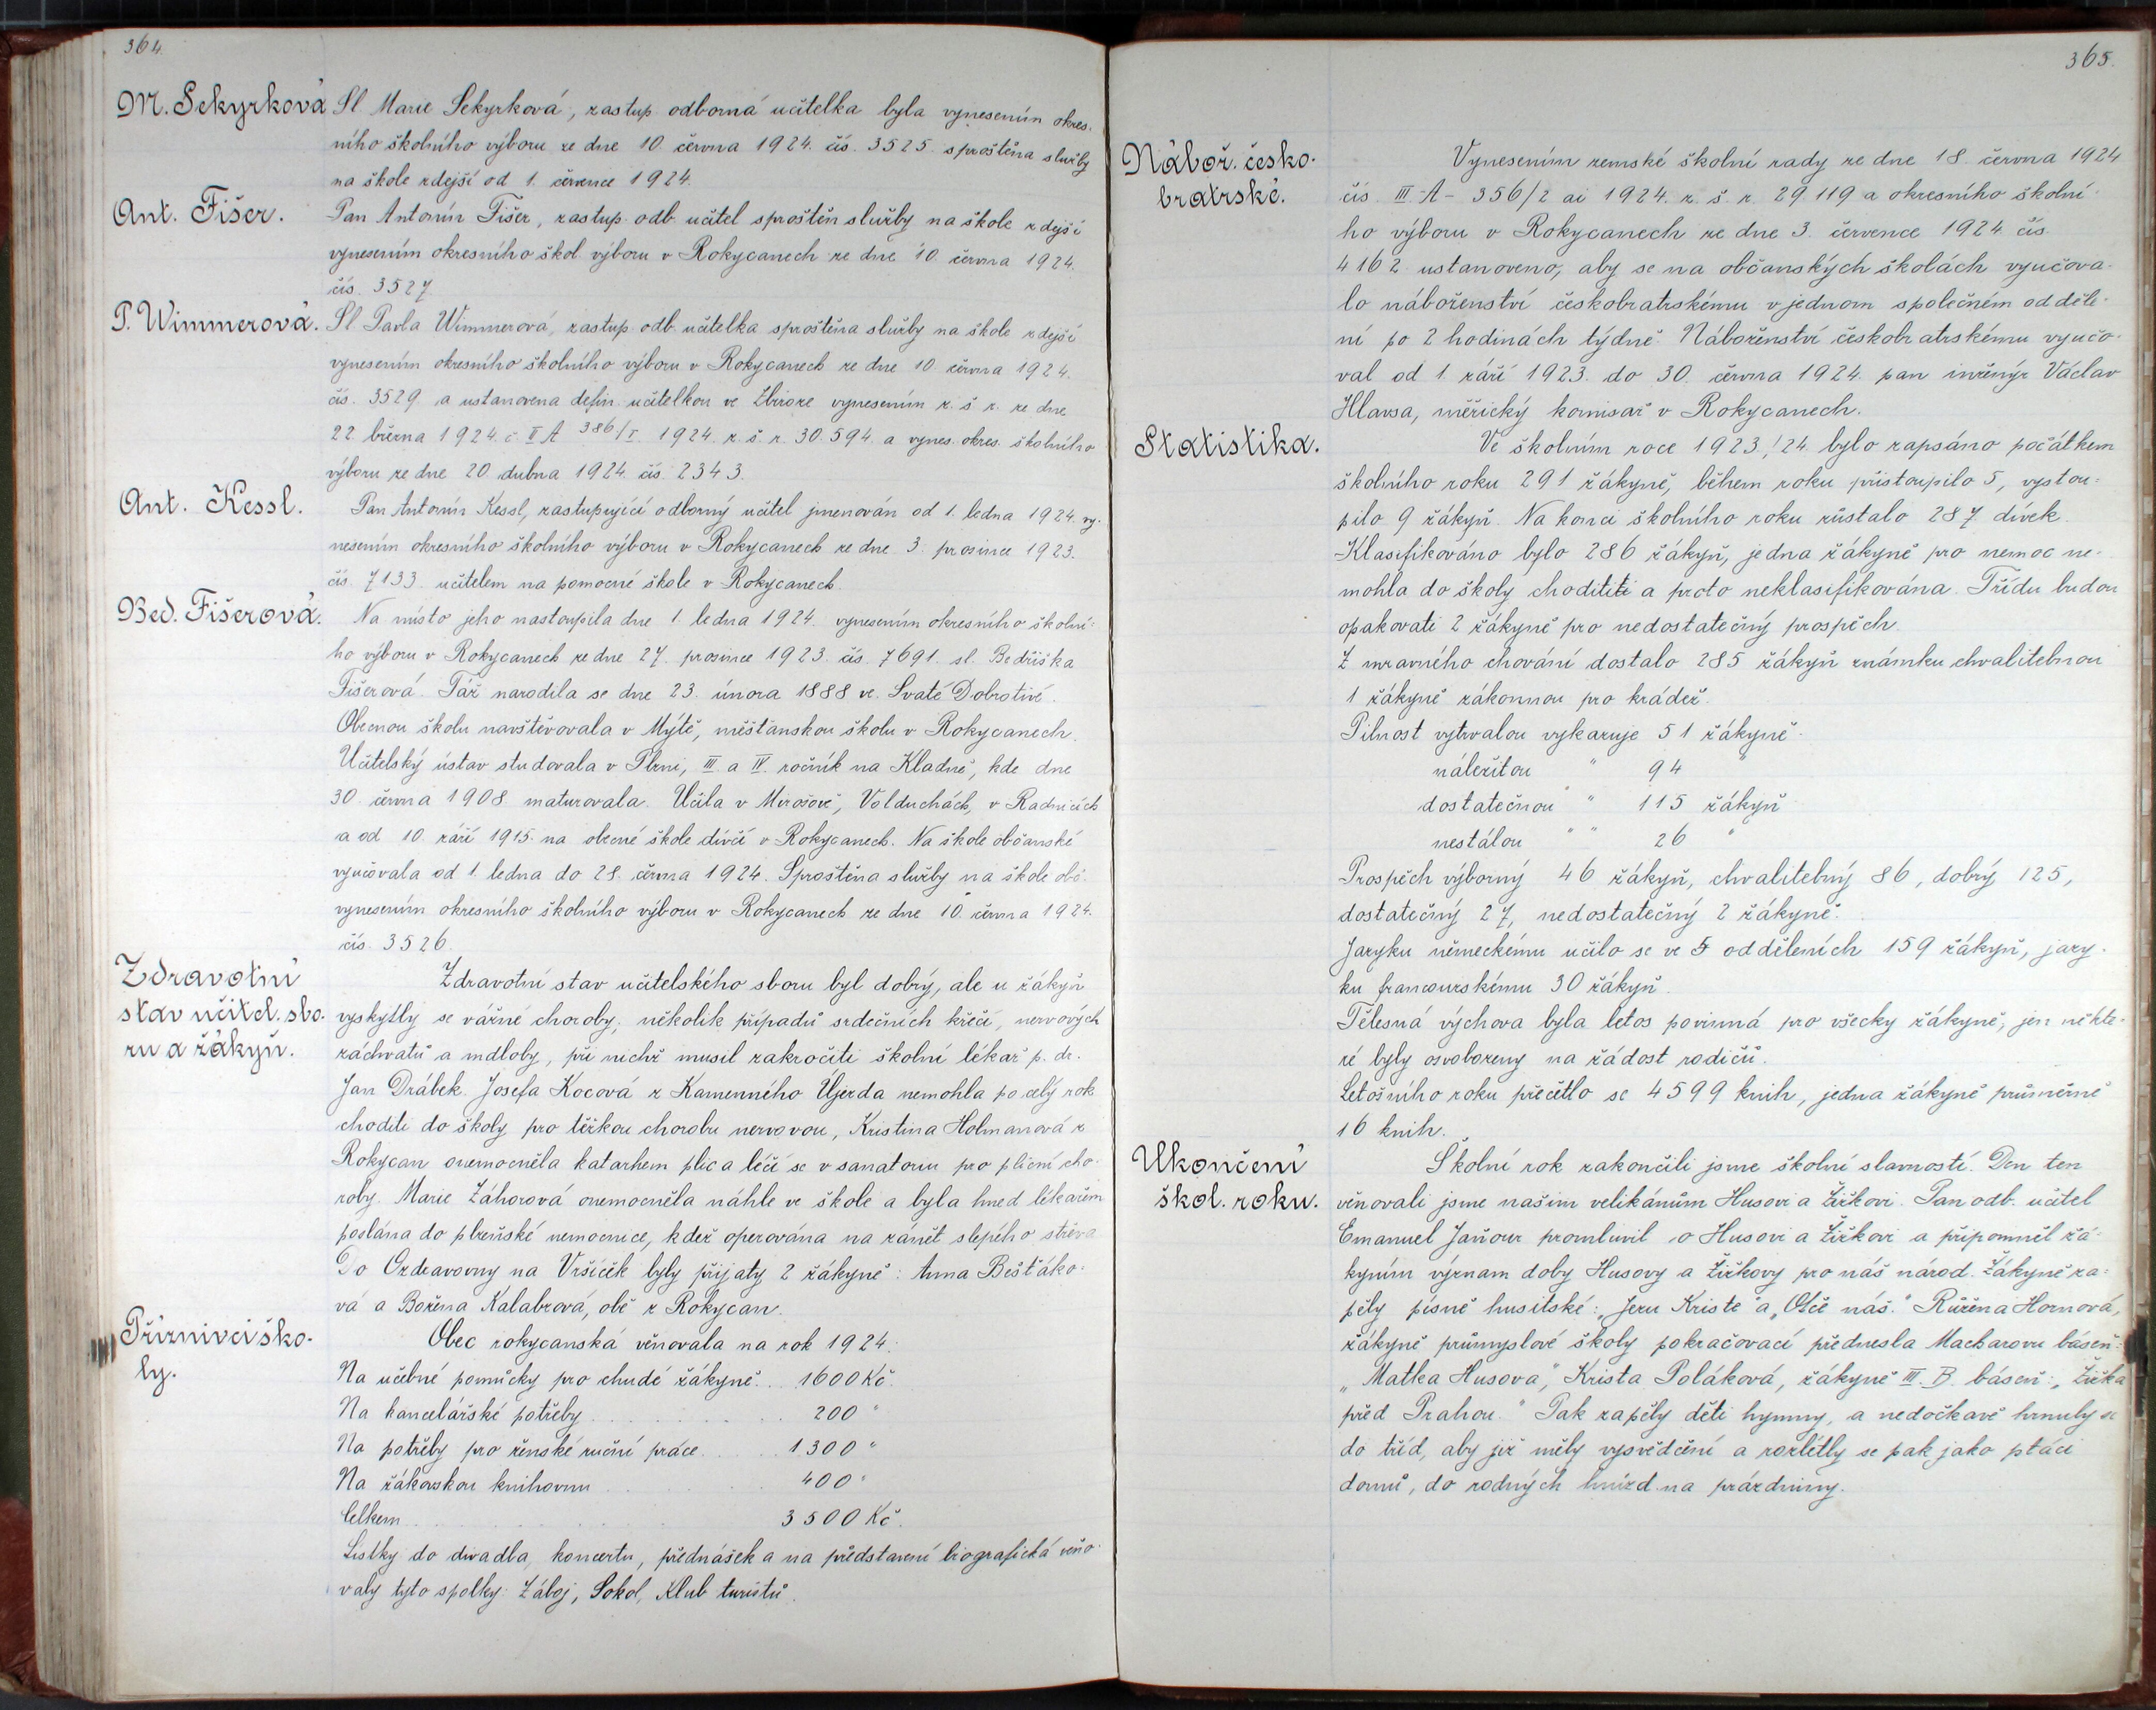 364.
M. Sekyrková
Sl. Marie Sekyrková, zastup. odborná učitelka byla vynesením okres-
ního školního výboru ze dne 10. června 1924. čís. 3525. sproštěna služby
na škole zdejší od 1. července 1924.
Ant. Fišer.
Pan Antonín Fišer, zastup. odb. učitel sproštěn služby na škole zdejší
vynesením okresního škol. výboru v Rokycanech ze dne 10. června 1924.
čís. 3527
P. Wimmerová.
Sl. Pavla Wimmerová, zastup. odb. učitelka sproštěna služby na škole zdejší
vynesením okresního školního výboru v Rokycanech ze dne 10. června 1924.
čís. 3529 a ustanovena defin. učitelkou ve Zbiroze vynesením z. š. r. ze dne
22. března 1924. č. II A 386/I 1924. z. š. r. 30.594. a vynes. okres. školního
výboru ze dne 20. dubna 1924. čís. 2343.
Ant. Kessl.
Pan Antonín Kessl, zastupující odborný učitel jmenován od 1. ledna 1924. vy-
nesením okresního školního výboru v Rokycanech ze dne 3. prosince 1923.
čís. 7133. učitelem na pomocné škole v Rokycanech.
Bed. Fišerová.
Na místo jeho nastoupila dne 1. ledna 1924. vynesením okresního školní-
ho výboru v Rokycanech ze dne 27. prosince 1923. čís. 7691. sl. Bedřiška
Fišerová. Táž narodila se dne 23. února 1888 ve Svaté Dobrotivé.
Obecnou školu navštěvovala v Mýtě, měšťanskou školu v Rokycanech.
Učitelský ústav studovala v Plzni, III. a IV. ročník na Kladně, kde dne
30. června 1908. maturovala. Učila v Mirošově, Volduchách, v Radnicích
a od 10. září 1915. na obecné škole dívčí v Rokycanech. Na škole občanské
vyučovala od 1. ledna do 28. června 1924. Sproštěna služby na škole obč.
vynesením okresního školního výboru v Rokycanech ze dne 10. června 1924.
čís. 3526.
Zdravotní
stav učitel. sbo-
ru a žákyň.
Zdravotní stav učitelského sboru byl dobrý, ale u žákyň
vyskytly se vážné choroby, několik případů srdečních křečí, nervových
záchvatů a mdloby, při nichž musil zakročiti školní lékař p. dr.
Jan Drábek. Josefa Kocová z Kamenného Újezda nemohla po celý rok
choditi do školy pro těžkou chorobu nervovou, Kristina Holmanová z
Rokycan onemocněla katarhem plic a léčí se v sanatoriu pro plicní cho-
roby. Marie Záhorová onemocněla náhle ve škole a byla hned lékařem
poslána do plzeňské nemocnice, kdež operována na zánět slepého střeva
Do Ozdravovny na Vršíček byly přijaty 2 žákyně: Anna Bešťáko-
vá a Božena Kalabzová, obě z Rokycan.
Příznivci ško-
ly.
Obec rokycanská věnovala na rok 1924.
Na učebné pomůcky pro chudé žákyně.. 1600 Kč.
Na kancelářské potřeby . . . . . . . 200 "
Na potřeby pro ženské ruční práce . . . 1300 "
Na žákovskou knihovnu . . . . . . 400 "
Celkem . . . . . . 3500 Kč.
Lístky do divadla, koncertu, přednášek a na představení biografická věno-
valy tyto spolky: Záboj, Sokol, Klub turistů.
365.
Nábož. česko-
bratrské.
Vynesením zemské školní rady ze dne 18. června 1924
čís. III-A- 356/2 ai 1924. z. š. r. 29.119 a okresního školní-
ho výboru v Rokycanech ze dne 3. července 1924. čís.
4162 ustanoveno, aby se na občanských školách vyučova-
lo náboženství českobratrskému v jednom společném odděle-
ní po 2 hodinách týdně. Náboženství českobratrskému vyučo-
val od 1. září 1923. do 30. června 1924. pan inženýr Václav
Hlavsa, měřický komisař v Rokycanech.
Statistika.
Ve školním roce 1923/24. bylo zapsáno počátkem
školního roku 291 žákyně, během roku přistoupilo 5, vystou-
pilo 9 žákyň. Na konci školního roku zůstalo 287 dívek.
Klasifikováno bylo 286 žákyň, jedna žákyně pro nemoc ne-
mohla do školy chodititi a proto neklasifikována. Třídu budou
opakovati 2 žákyně pro nedostatečný prospěch.
Z mravného chování dostalo 285 žákyň známku chvalitebnou
1 žákyně zákonnou pro krádež.
Pilnost vytrvalou vykazuje 51 žákyně.
náležitou " 94 "
dostatečnou " " 115 žákyň
nestálou " " 26 "
Prospěch výborný 46 žákyň, chvalitebný 86, dobrý 125,
dostatečný 27, nedostatečný 2 žákyně.
Jazyku německému učilo se ve 5 odděleních 159 žákyň, jazy-
ku francouzskému 30 žákyň.
Tělesná výchova byla letos povinná pro všecky žákyně, jen někte-
ré byly osvobozeny na žádost rodičů.
Letošního roku přečetlo se 4599 knih, jedna žákyně průměrně
16 knih.
Ukončení
škol. roku.
Školní rok zakončili jsme školní slavností. Den ten
věnovali jsme našim velikánům Husovi a Žižkovi. Pan odb. učitel
Emanuel Jaňour promluvil o Husovi a Žižkovi a připomněl žá-
kyním význam doby Husovy a Žižkovy pro náš národ. Žákyně za-
pěly písně husitské: „Jezu Kriste" a „Otče náš." Růžena Hornová,
žákyně průmyslové školy pokračovací přednesla Macharovu báseň:
„Matka Husova", Krista Poláková, žákyně III. B. báseň: „Žižka
před Prahou." Pak zapěly děti hymny, a nedočkavě hrnuly se
do tříd, aby již měly vysvědčení a rozlétly se pak jako ptáci
domů, do rodných hnízd na prázdniny.